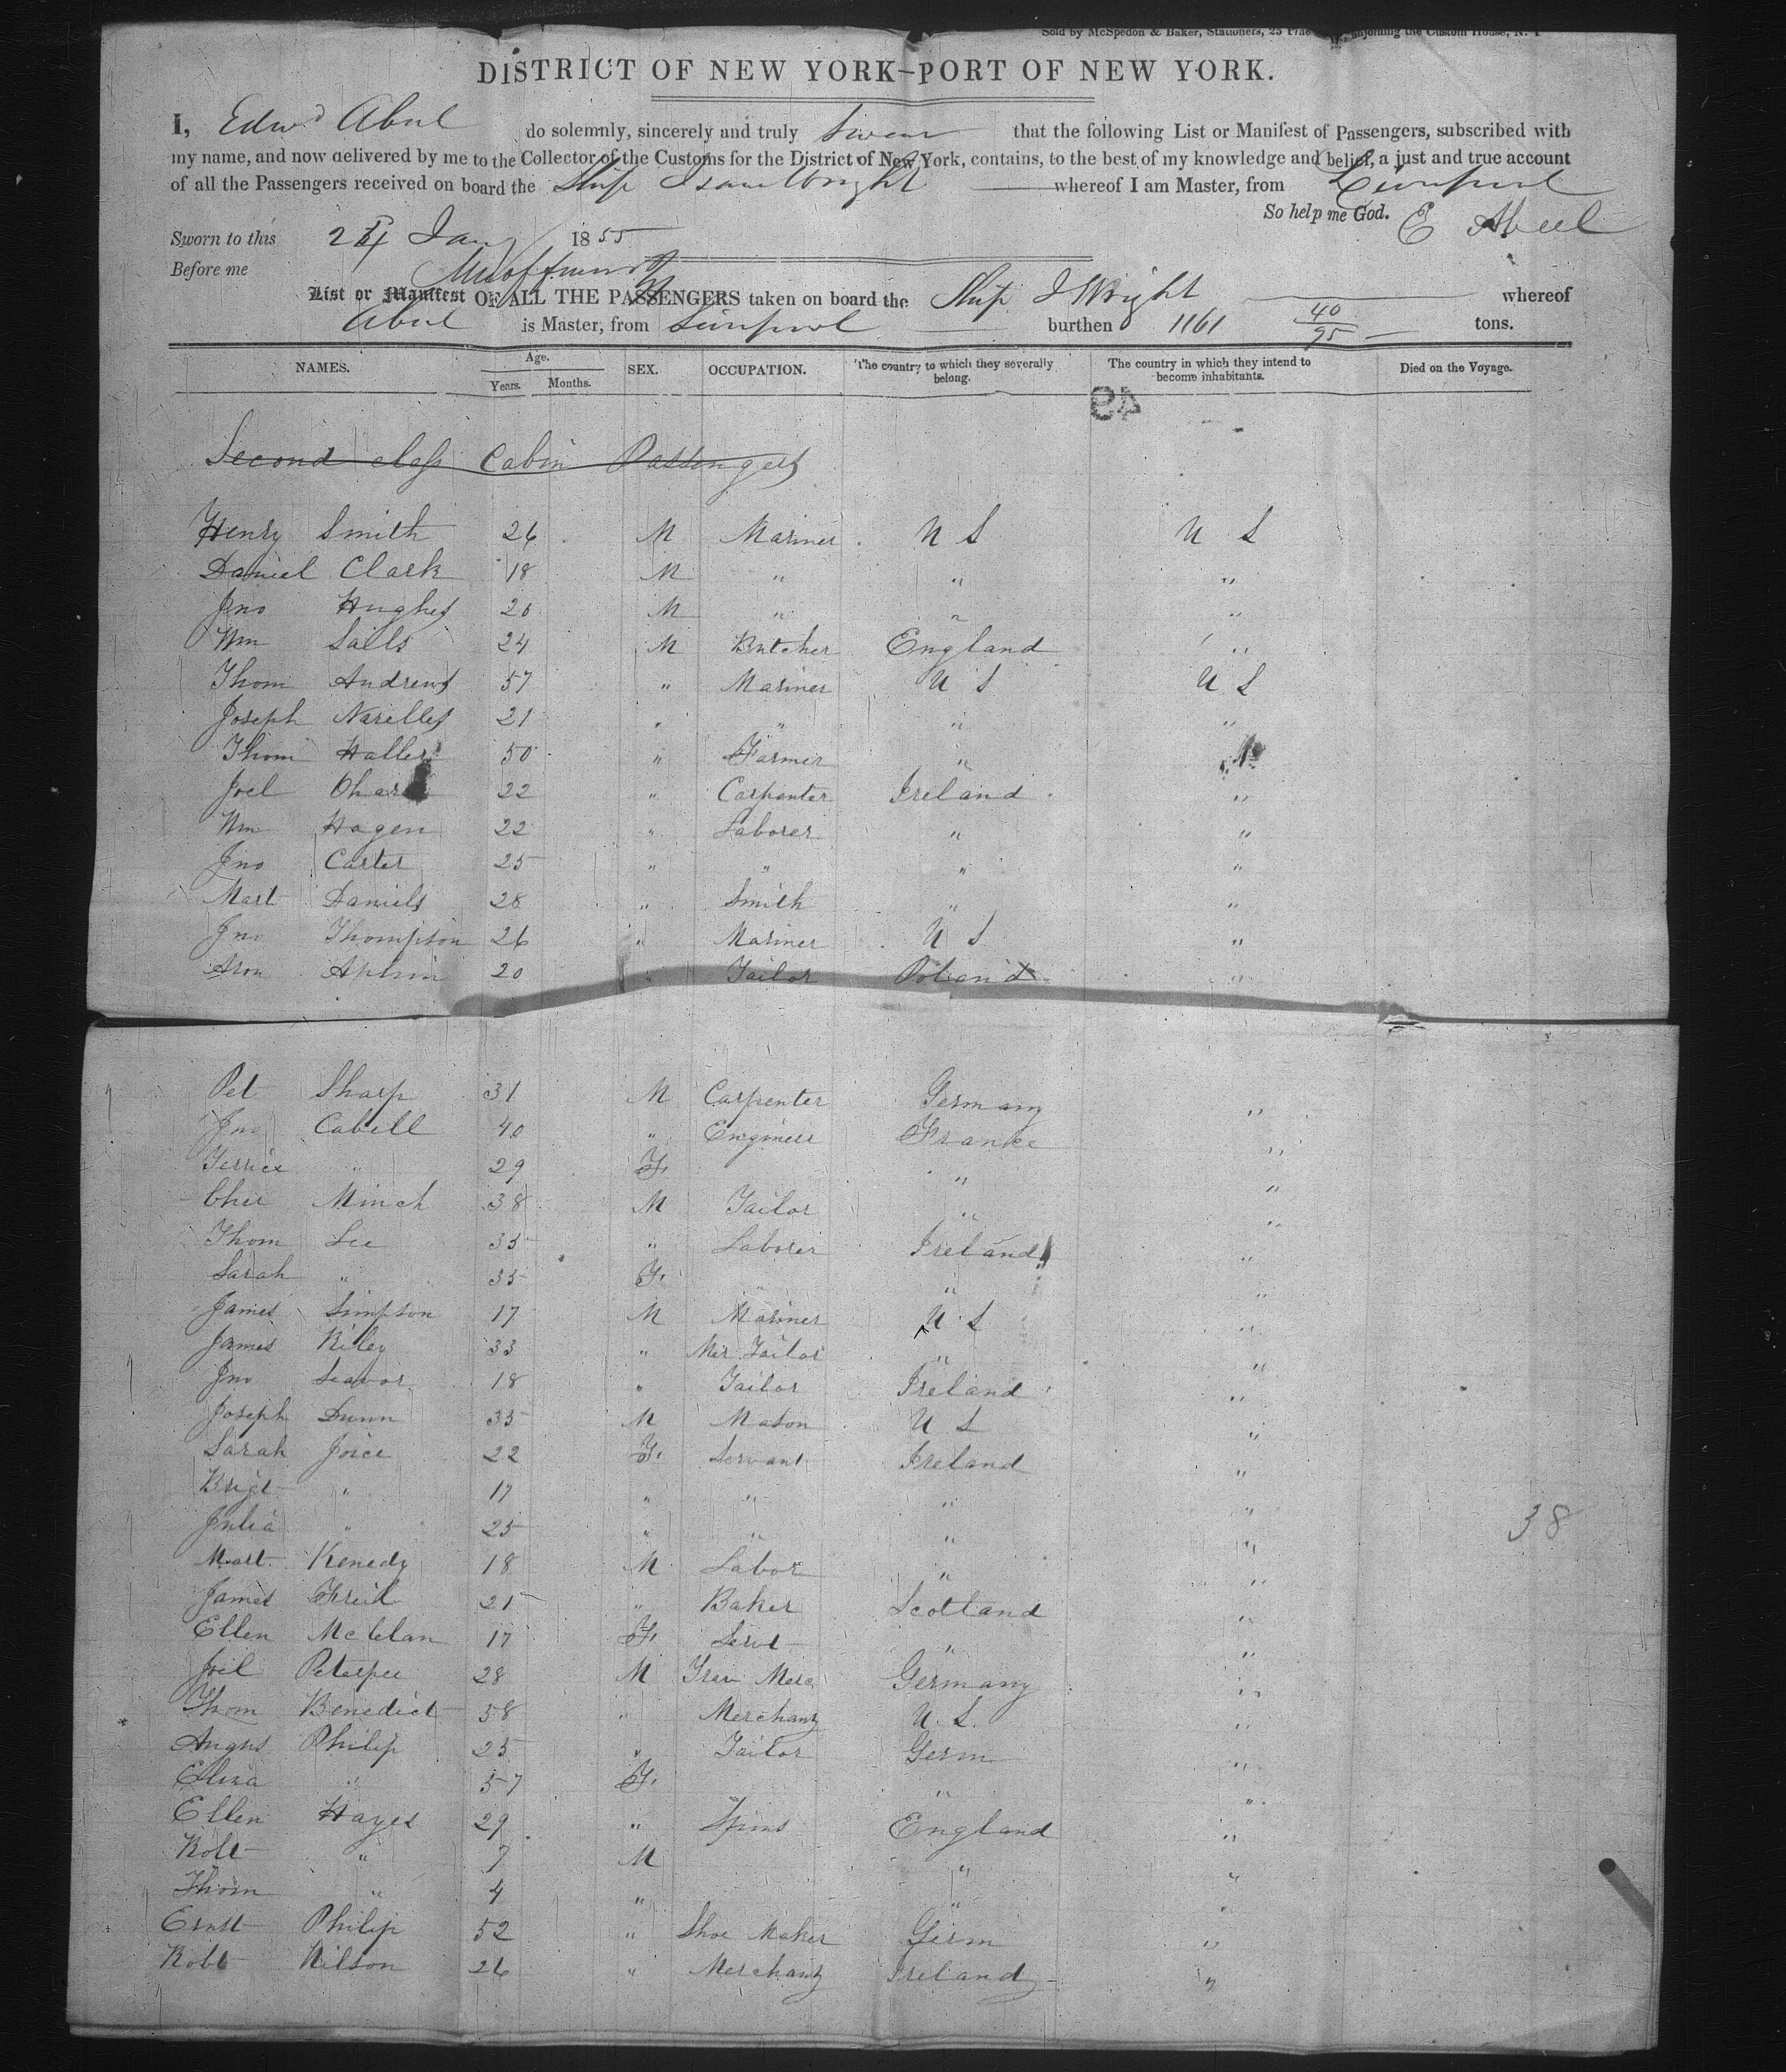 Sold by McSpedon & Baker, Stationers, 25 Pine adjoining the Custom House, N. Y
DISTRICT OF NEW YORK–PORT OF NEW YORK.
I, Edwd Abeel do solemnly, sincerely and truly Swear that the following List or Manifest of Passengers, subscribed with
my name, and now delivered by me to the Collector of the Customs for the District of New York, contains, to the best of my knowledge and belief, a just and true account
of all the Passengers received on board the Ship Isaac Wright whereof I am Master, from Liverpool
So help me God. E Abeel
Sworn to this 24 Jany 1855
Before me
List or Manifest OF ALL THE PASSENGERS taken on board the Ship I Wright whereof
Abeel is Master, from Liverpool burthen 1161 40/95 tons.
NAMES. Age. Years. Months. SEX. OCCUPATION. The country to which they severally belong. The country in which they intend to become inhabitants. Died on the Voyage.
49
Second class Cabin Passengers
Henry Smith 26 M Mariner U S U S
Daniel Clark 18 M " " "
Jno Hughes 20 M " " "
Wm Sails 24 M Butcher England "
Thom Andrews 57 " Mariner U S U S
Joseph Narelles 21 " " " "
Thom Haller 50 " Farmer " "
Joel Ohara 22 " Carpenter Ireland "
Wm Hagen 22 " Laborer " "
Jno Carter 25 " " " "
Mart Daniels 28 " Smith " "
Jno Thompson 26 " Mariner U S "
Aron 20 " Tailor Poland "
Pet Sharp 31 M Carpenter Germany "
Jno Cabell 40 " Engineer France "
" 29 F " "
Minch 38 M Tailor " "
Thom Lee 35 " Laborer Ireland "
Sarah " 35 F " " "
James Simpson 17 M Mariner U S "
James Riley 33 " Mer Tailor " "
Jno Seavor 18 " Tailor Ireland "
Joseph Dunn 35 M Mason U S "
Sarah Joice 22 F Servant Ireland "
Brigt " 17 " " " "
Julia " 25 " " " "
38
Mart Kenedy 18 M Labor " "
James Freil 21 " Baker Scotland "
Ellen McLelan 17 F Servt " "
Joel 28 M Trav Merc Germany "
Thom Benedict 58 " Merchant U. S. "
Angus Philip 25 " Tailor Germ "
Eliza " 57 F " "
Ellen Hayes 29 " Spins England "
Robt " 7 M " "
Thom " 4 " " "
Ernst Philip 52 " Shoe Maker Germ "
Robt Wilson 26 " Merchant Ireland "